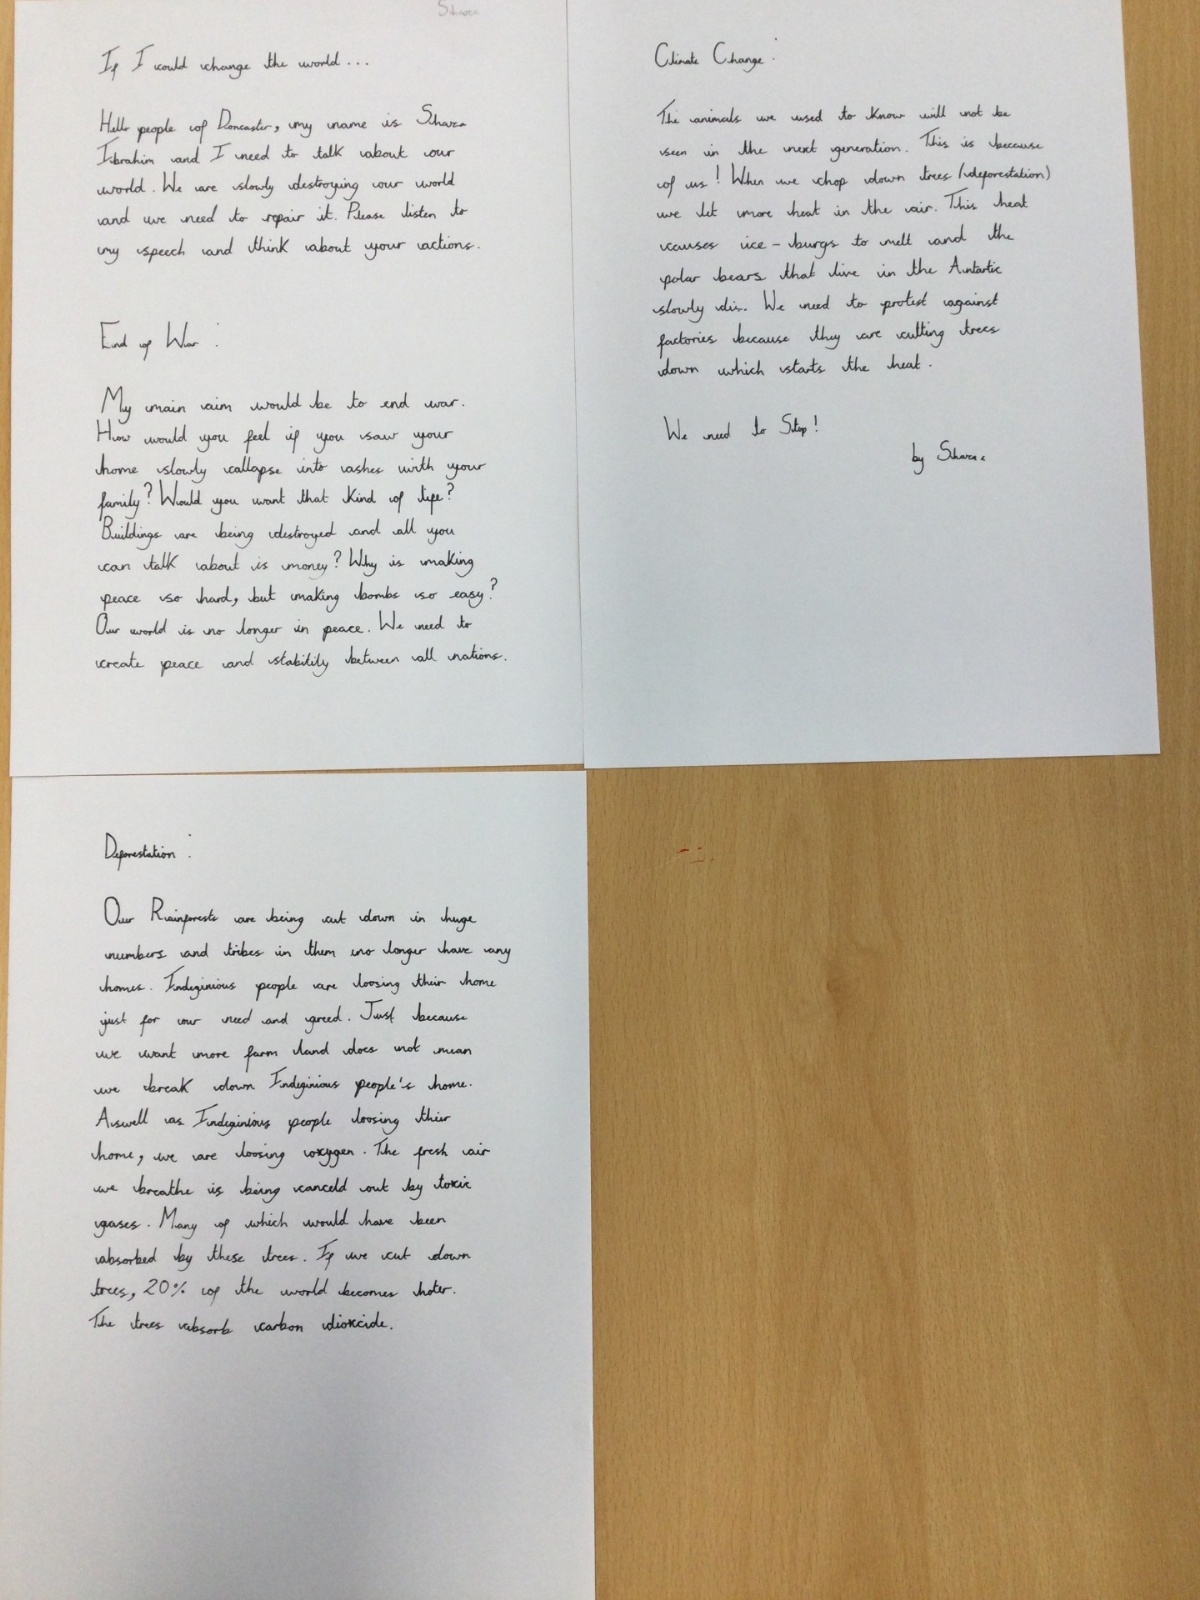 If I could change the world...
Hello people of Doncaster, my name is Shara
Ibrahim and I need to talk about our
world. We are slowly destroying our world
and we need to repair it. Please listen to
my speech and think about your actions.
End of War :
My main aim would be to end war.
How would you feel if you saw your
home slowly collapse into ashes with your
family? Would you want that kind of life?
Buildings are being destroyed and all you
can talk about is money? Why is making
peace so hard, but making bombs so easy?
Our world is no longer in peace. We need to
create peace and stability between all nations.
Climate Change :
The animals we used to know will not be
seen in the next generation. This is because
of us! When we chop down trees (deforestation)
we let more heat in the air. This heat
causes ice-burgs to melt and the
polar bears that live in the Antartic
slowly die. We need to protest against
factories because they are cutting trees
down which starts the heat.
We need to Stop!
by Shara
Deforestation :
Our Rainforests are being cut down in huge
numbers and tribes in them no longer have any
homes. Indeginious people are loosing their home
just for our need and greed. Just because
we want more farm land does not mean
we break down Indeginious people's home.
Aswell as Indeginious people loosing their
home, we are loosing oxygen. The fresh air
we breathe is being canceld out by toxic
gases. Many of which would have been
absorbed by these trees. If we cut down
trees, 20% of the world becomes hoter.
The trees absorb carbon dioxcide.